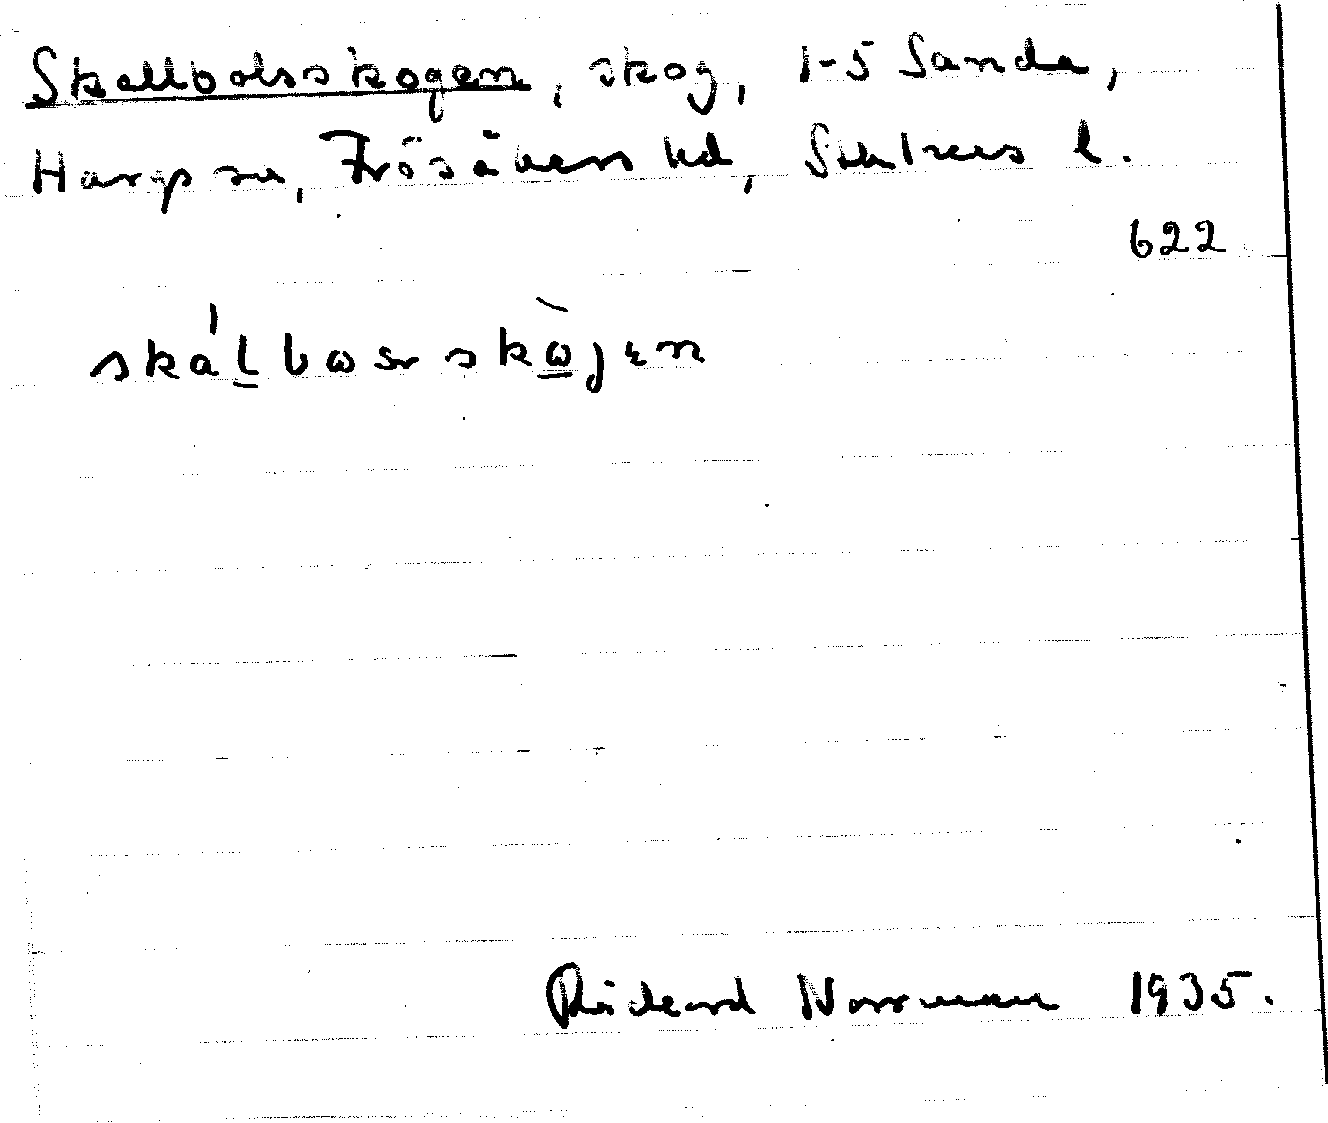 Skallbolsskogen, skog, 1-5 Sanda,
Harg sn, Frösåkers hd, Sthlms l.
622
skálbωsrskὼgen
Rickard Norrman 1935.